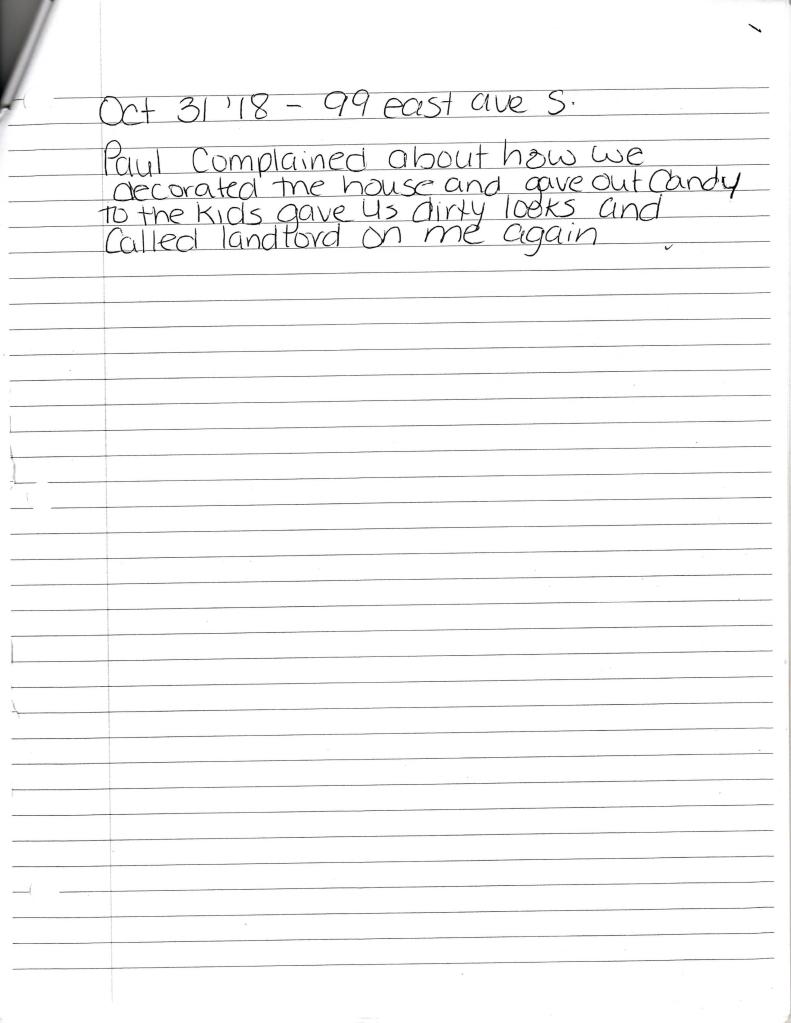 Oct 31 '18 - 99 east ave S.
Paul Complained about how we
decorated the house and gave out Candy
to the Kids gave us dirty looks and
Called landlord on me again